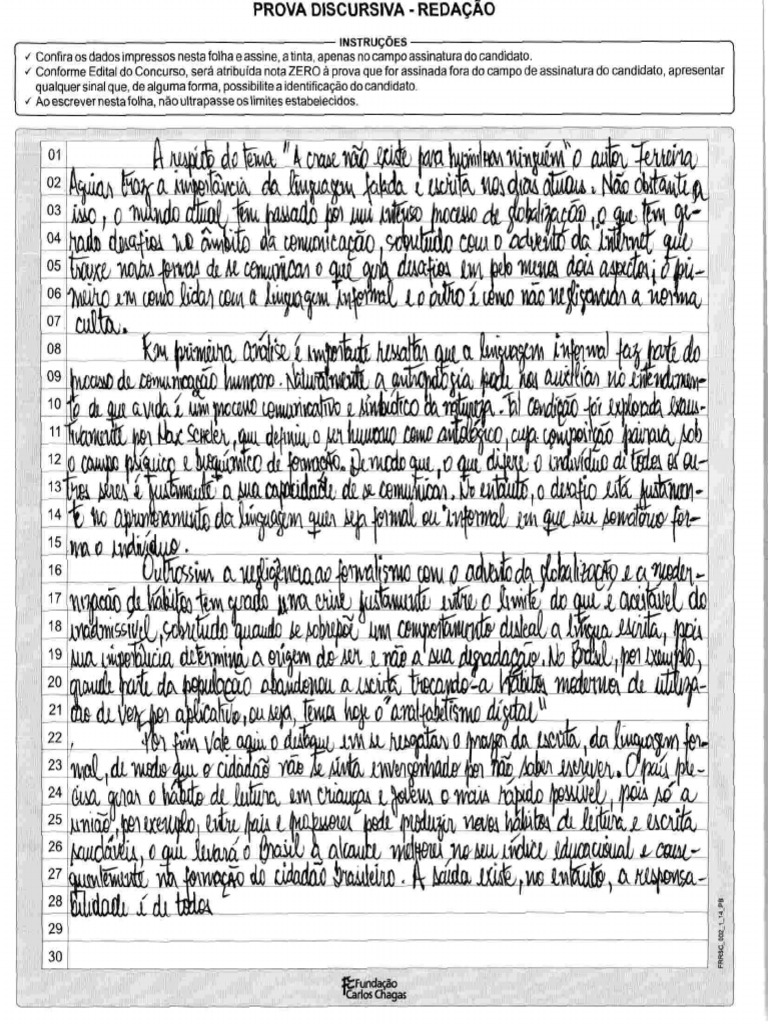 PROVA DISCURSIVA - REDAÇÃO
INSTRUÇÕES
✓ Confira os dados impressos nesta folha e assine, a tinta, apenas no campo assinatura do candidato.
✓ Conforme Edital do Concurso, será atribuída nota ZERO à prova que for assinada fora do campo de assinatura do candidato, apresentar
qualquer sinal que, de alguma forma, possibilite a identificação do candidato.
✓ Ao escrever nesta folha, não ultrapasse os limites estabelecidos.
01 A respeito do tema "A crase não existe para humilhar ninguém" o autor Ferreira
02 Aguiar traz a importância da linguagem falada e escrita nos dias atuais. Não obstante a
03 isso, o mundo atual tem passado por um intenso processo de globalização, o que tem ge-
04 rado desafios no âmbito da comunicação, sobretudo com o advento da internet que
05 trouxe novas formas de se comunicar o que gera desafios em pelo menos dois aspectos; o pri-
06 meiro em como lidar com a linguagem informal e o outro é como não negligenciar a norma
07 culta.
08 Em primeira análise é importante ressaltar que a linguagem informal faz parte do
09 processo de comunicação humano. Naturalmente a antropologia pode nos auxiliar no entendimen-
10 to de que a vida é um processo comunicativo e simbiótico da natureza. Tal condição foi explorada exaus-
11 tivamente por Max Scheler, que definiu o ser humano como ontológico, cuja composição pairava sob
12 o campo psíquico e bioquímico de formação. De modo que, o que difere o indivíduo de todos os ou-
13 tros seres é justamente a sua capacidade de se comunicar. No entanto, o desafio está justamen-
14 te no aprimoramento da linguagem quer seja formal ou informal em que seu somatório for-
15 ma o indivíduo.
16 Outrossim a negligência ao formalismo com o advento da globalização e a moder-
17 nização de hábitos tem gerado uma crise justamente entre o limite do que é aceitável do
18 inadmissível, sobretudo quando se sobrepõe um comportamento desleal a língua escrita, pois
19 sua importância determina a origem do ser e não a sua degradação. No Brasil, por exemplo,
20 grande parte da população abandonou a escrita trocando-a hábitos modernos de utiliza-
21 ção de voz por aplicativo, ou seja, temos hoje o "analfabetismo digital"
22 Por fim vale aqui o destaque em se resgatar o prazer da escrita, da linguagem for-
23 mal, de modo que o cidadão não se sinta envergonhado por não saber escrever. O país pre-
24 cisa gerar o hábito de leitura em crianças e jovens o mais rápido possível, pois só a
25 união, por exemplo, entre pais e professores pode produzir novos hábitos de leitura e escrita
26 saudáveis, o que levará o Brasil a alcance melhores no seu índice educacional e conse-
27 quentemente na formação do cidadão brasileiro. A saída existe, no entanto, a responsa-
28 bilidade é de todos
29
30
FRRSC_002_1_14_PB
Fundação
Carlos Chagas